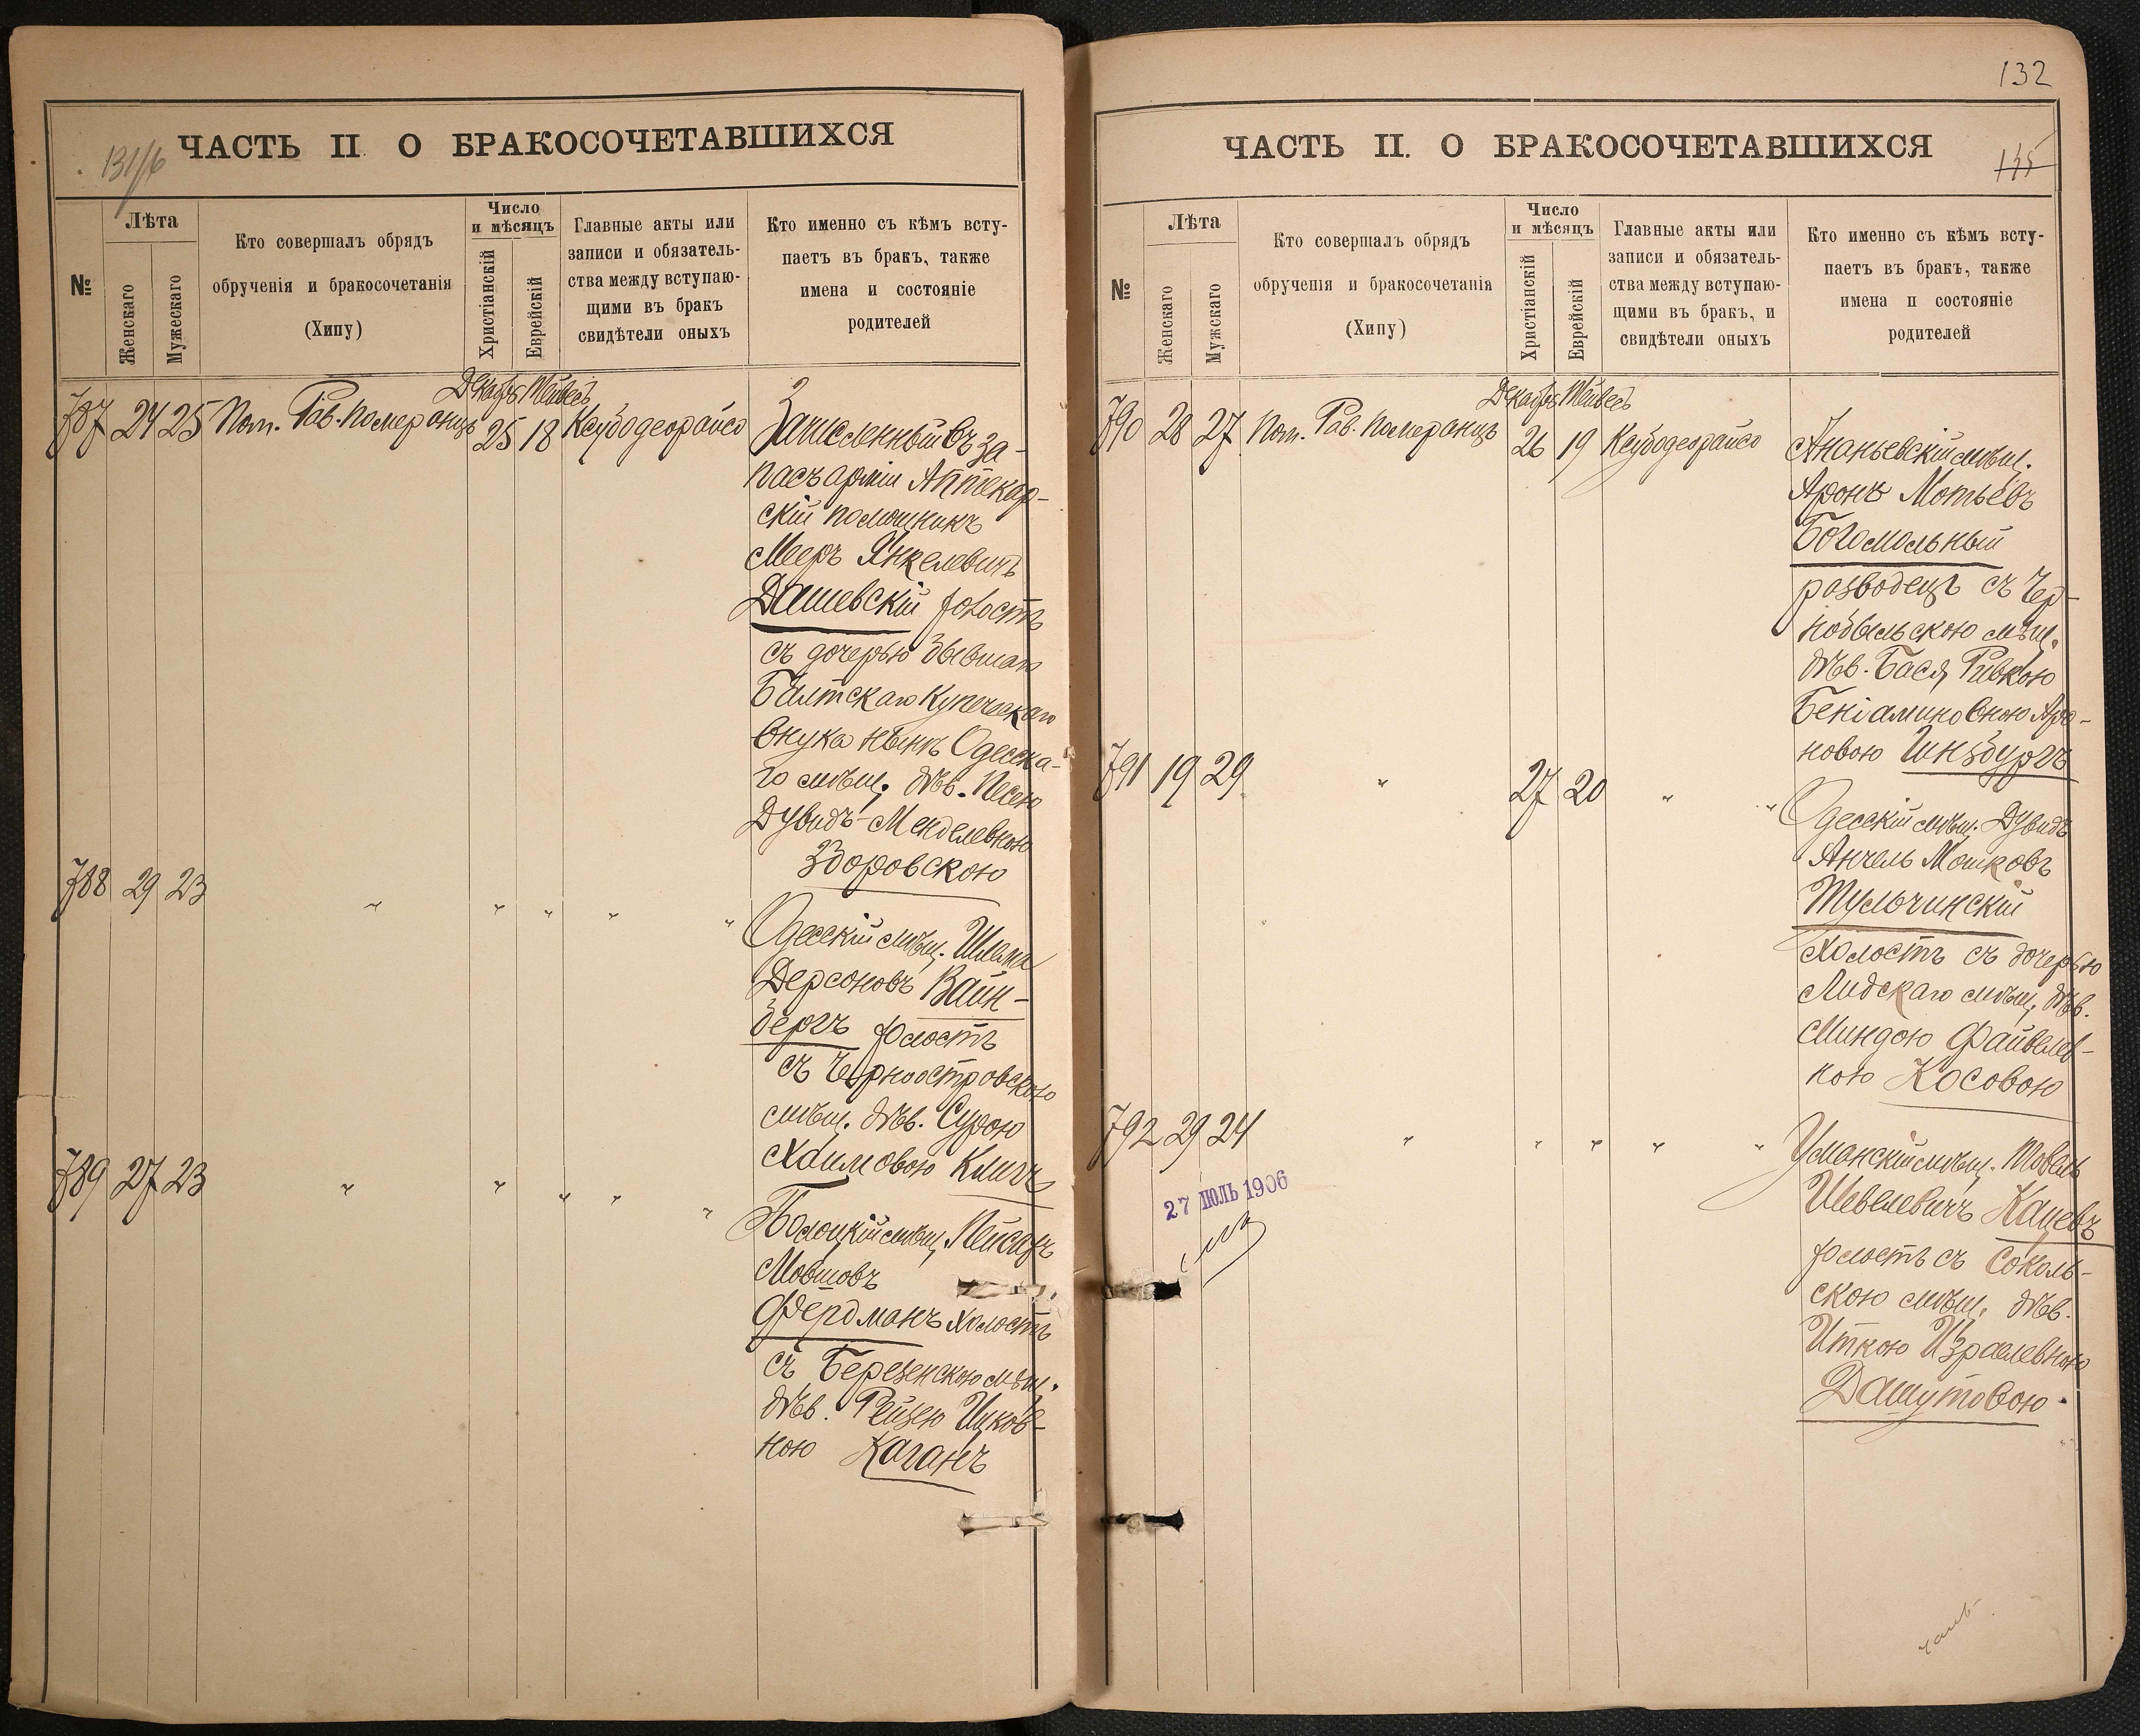 131/б
ЧАСТЬ II О БРАКОСОЧЕТАВШИХСЯ
№
Лѣта
Женскаго
Мужескаго
Кто совершалъ обрядъ
обрученія и бракосочетанія
(Хипу)
Число
и мѣсяцъ
Христіанскій
Еврейскій
Главные акты или
записи и обязатель-
ства между вступаю-
щими въ бракъ
свидѣтели оныхъ
Кто именно съ кѣмъ всту-
паетъ въ бракъ, также
имена и состояніе
родителей
Декабрь Тейвесъ
787 24 25 Пом. Рав. Померанцъ 25 18 Ксубодеорайсо
Зачисленный въ за-
пасъ арміи Аптекар-
скій помощникъ
Мееръ Янкелевичъ
Дашевскій холостъ
съ дочерью бывшаго
Балтскаго Купеческаго
внука нынѣ Одесска-
го мѣщ. дѣв. Песею
Дувидъ-Менделевною
Здоровскою
788 29 23 " " " " "
Одесскій мѣщ. Шлема
Герсоновъ Вайн-
бергъ холостъ
съ Черноостровскою
мѣщ. дѣв. Сурою
Хаимовою Клигъ
789 27 23 " " " " "
мѣщ. Пейсахъ
Мовшовъ
Фердманъ холостъ
съ Березенскою мѣщ.
дѣв. Рейзею Ицков-
ною Каганъ
132
ЧАСТЬ II. О БРАКОСОЧЕТАВШИХСЯ
135
№
Лѣта
Женскаго
Мужскаго
Кто совершалъ обрядъ
обрученія и бракосочетанія
(Хипу)
Число
и мѣсяцъ
Христіанскій
Еврейскій
Главные акты или
записи и обязатель-
ства между вступаю-
щими въ бракъ, и
свидѣтели оныхъ
Кто именно съ кѣмъ всту-
паетъ въ бракъ, также
имена и состояніе
родителей
Декабрь Тейвесъ
790 28 27 Пом. Рав. Померанцъ 26 19 Ксубодеорайсо
Ананьевскій мѣщ.
Аронъ Мотьевъ
Богомольный
разводецъ съ Чер-
нобыльскою мѣщ.
дѣв. Бася Ривкою
Беніаминовною Аро-
новою Гинзбургъ
791 19 29 " 27 20 " "
Одесскій мѣщ. Дувидъ
Анчель Мошковъ
Тульчинскій
холостъ съ дочерью
Лидскаго мѣщ. дѣв.
Миндою Файвелев-
ною Косовою
792 29 24 " " " " "
Уманскій мѣщ. Товель
Шевелевичъ Кацевъ
холостъ съ Соколь-
скою мѣщ. дѣв.
Иткою Израелевною
Дашутовою.
27 ІЮЛЬ 1906